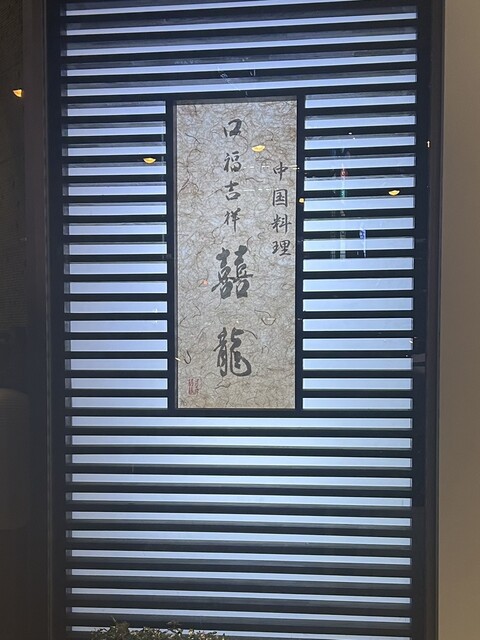 中国料理
口福吉祥 囍龍